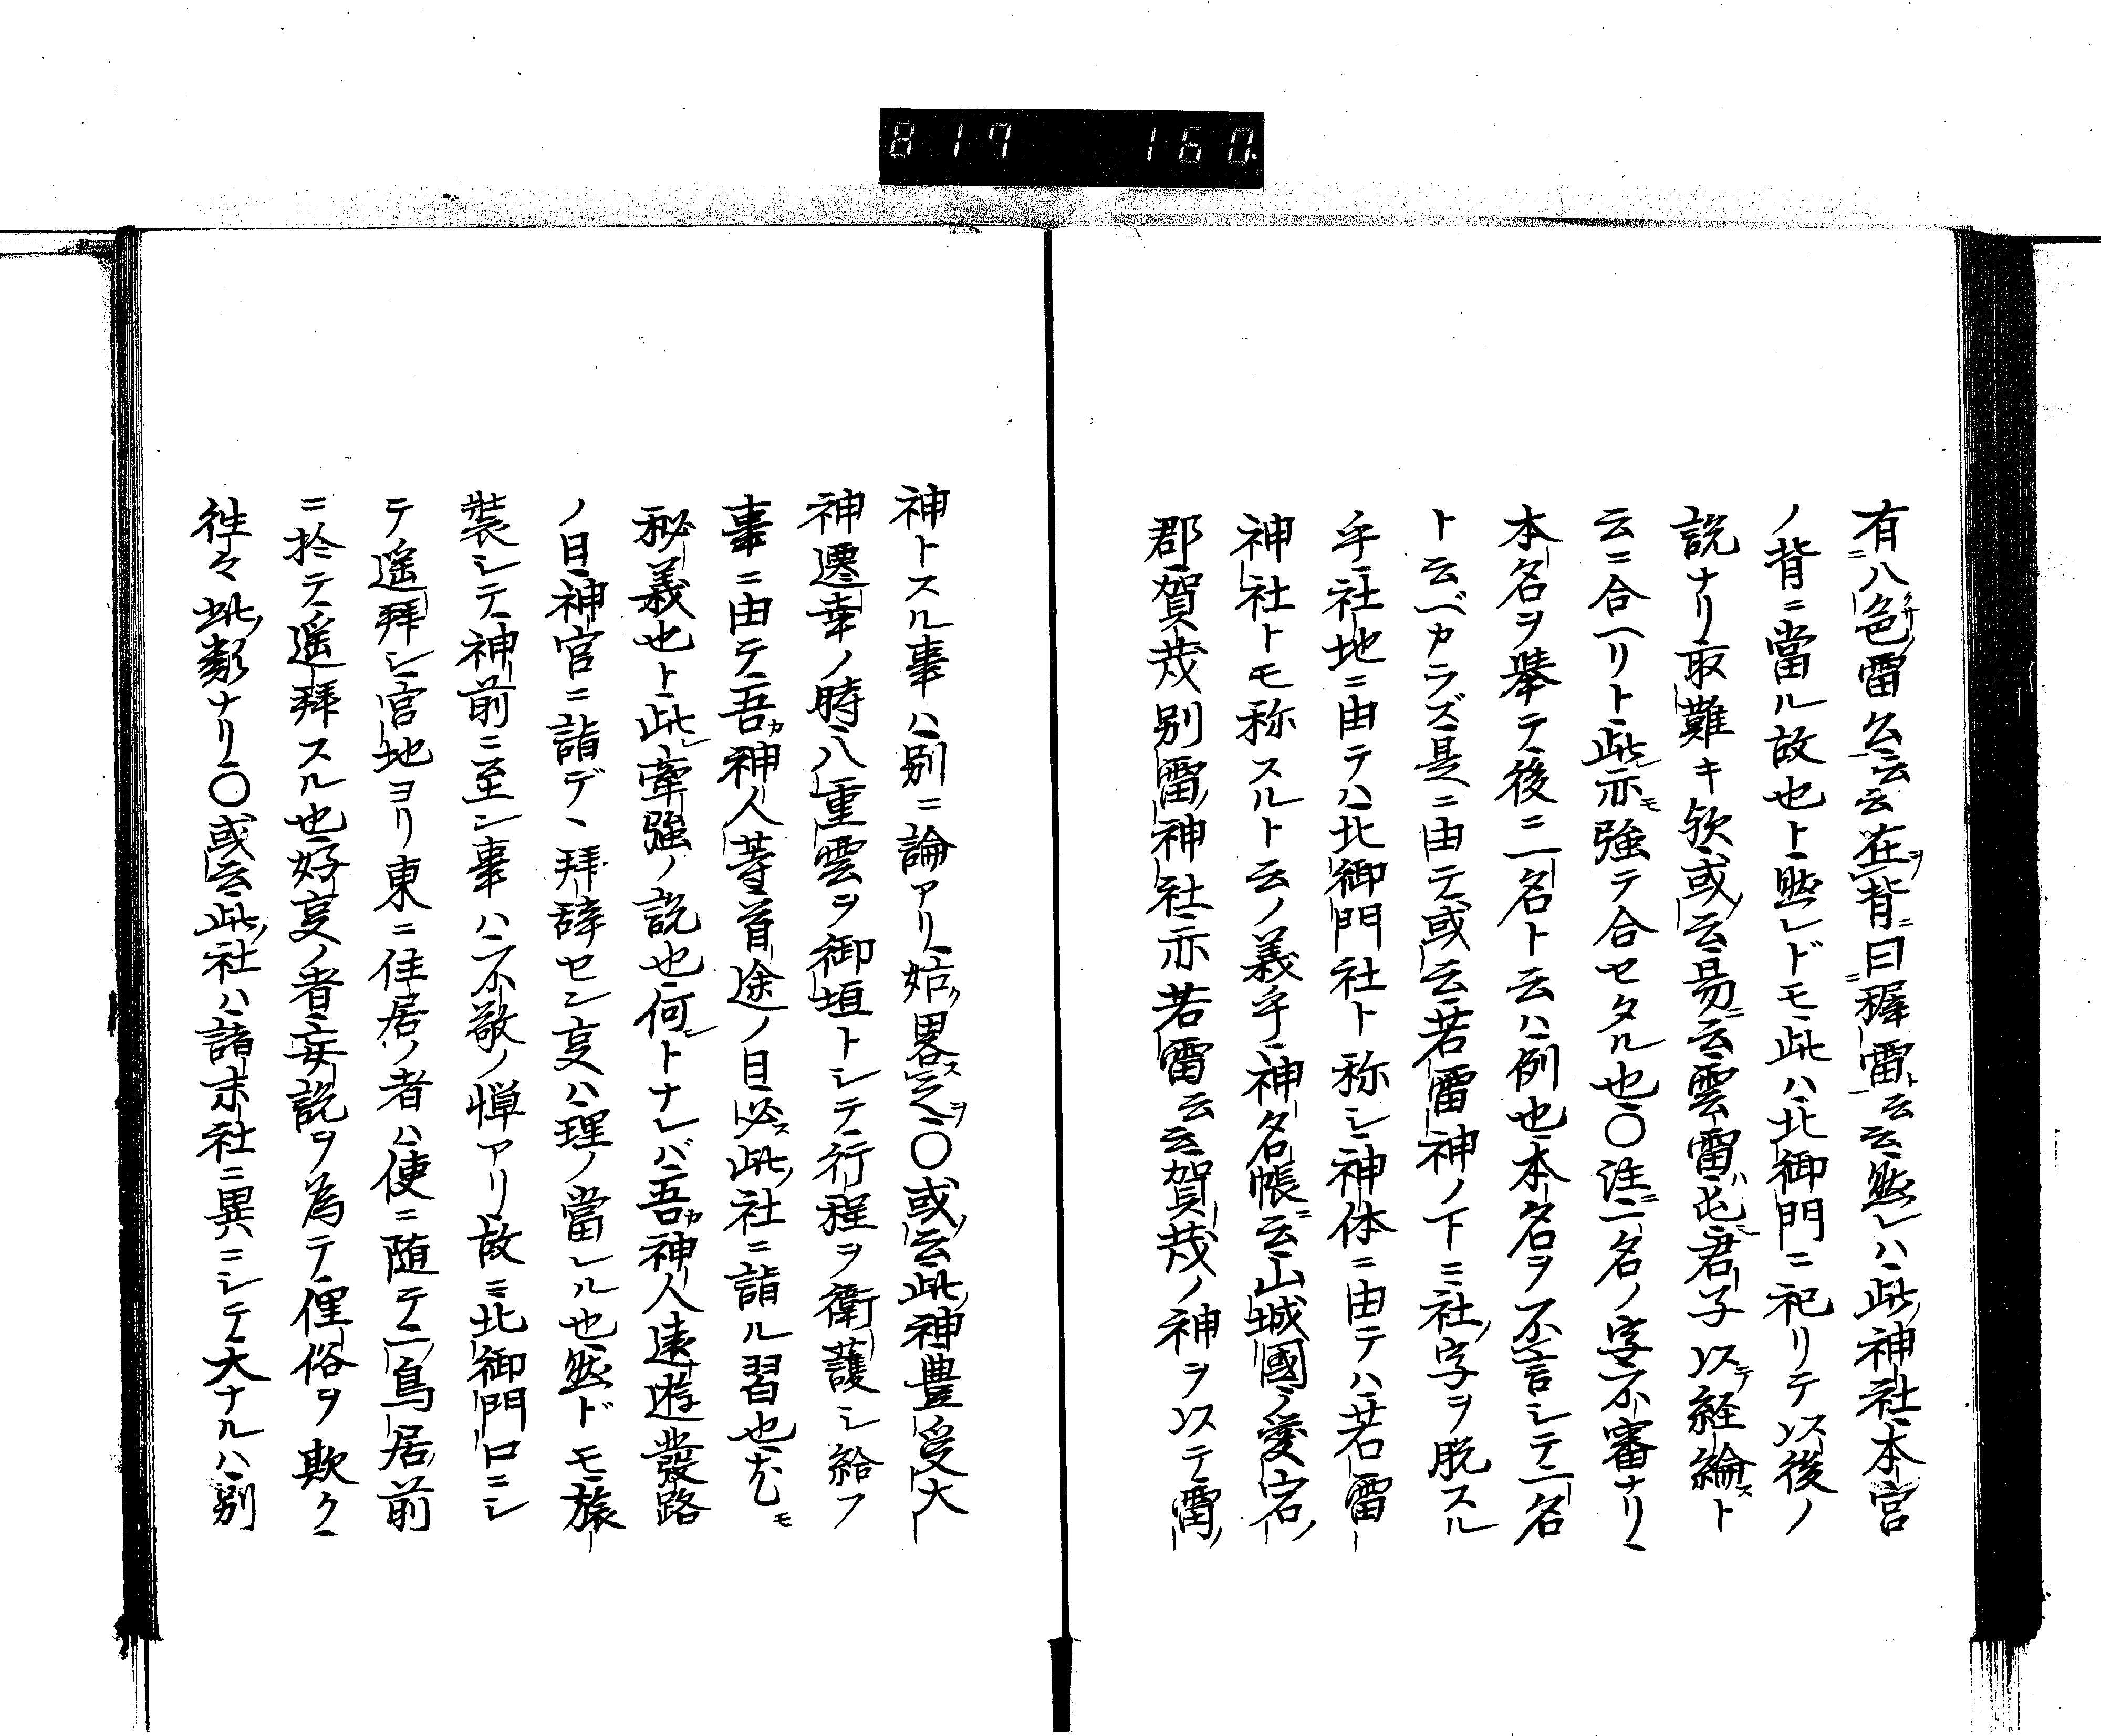 817 160
有ニ八色ノ雷公一云云在ヲ背ニ曰ニ稚雷ト一云云然レハ此ノ神社本宮
ノ背ニ當ル故也ト然レドモ此ハ北御門ニ祀リテ以後ノ
説ナリ取難キ欤或ノ云易ニ云雲雷ハ屯君子以テ経綸スト
云ニ合ヘリト此レ亦モ強テ合セタル也〇注ニ二名ノ字不審ナリ
本名ヲ舉テ後ニ二名ト云ハ例也本名ヲ不言シテ二名
ト云ベカラズ是ニ由テ或ノ云若雷神ノ下ニ社ノ字ヲ脱スル
乎社地ニ由テハ北御門社ト称シ神体ニ由テハ若雷
神社トモ称スルト云ノ義乎神名帳ニ云山城國ノ愛宕ノ
郡賀茂別雷ノ神社亦若雷云云賀茂ノ神ヲ以テ雷ノ
神トスル事ハ別ニ論アリ姑ク畧ス之ヲ〇或ノ云此ノ神豊受大
神遷幸ノ時八重雲ヲ御垣トシテ行程ヲ衛護シ給フ
事ニ由テ吾カ神人等首途ノ日必ス此ノ社ニ詣ル習也尤モ
秘義也ト此レ牽強ノ説也何ントナレバ吾カ神人遠遊發路
ノ日神官ニ詣デ丶拜辞セン叓ハ理ノ當レル也然ドモ旅
装シテ神前ニ至ン事ハ不敬ノ憚アリ故ニ北御門口ニシ
テ遥拜シ宮地ヨリ東ニ住居ノ者ハ使ニ随テ二ノ鳥居ノ前
ニ於テ遥拜スル也好叓ノ者妄説ヲ為テ俚俗ヲ欺ク
徃々此ノ類ナリ〇或ノ云此ノ社ハ諸末社ニ異ニシテ大ナルハ別